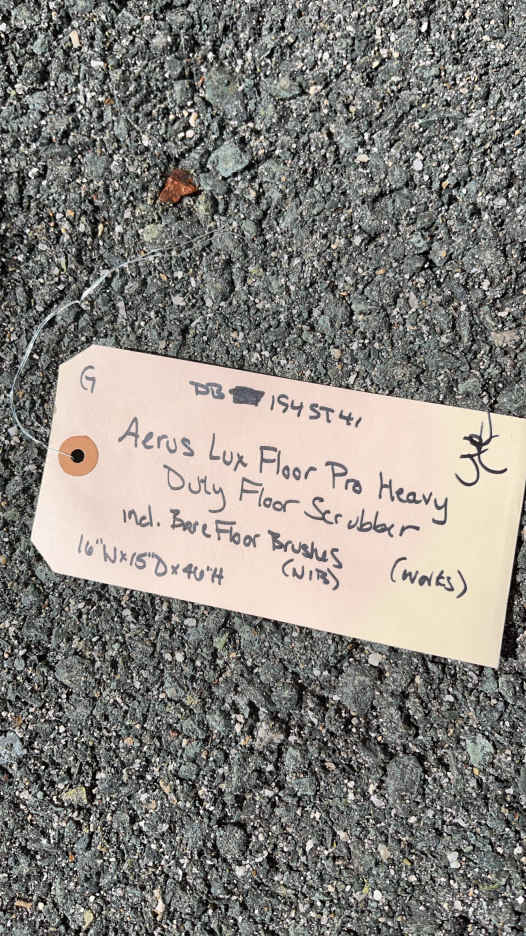 G
DB 1945T41
Aerus Lux Floor Pro Heavy
Duty Floor Scrubber
incl. Bare Floor Brushes
(NIB)
(works)
16"W x 15"D x 46"H